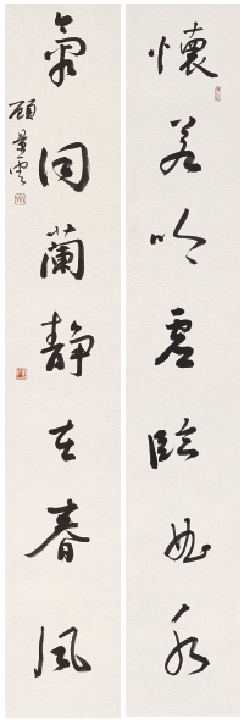 懷若竹虛臨曲水
氣同蘭靜在春風
顧景雲